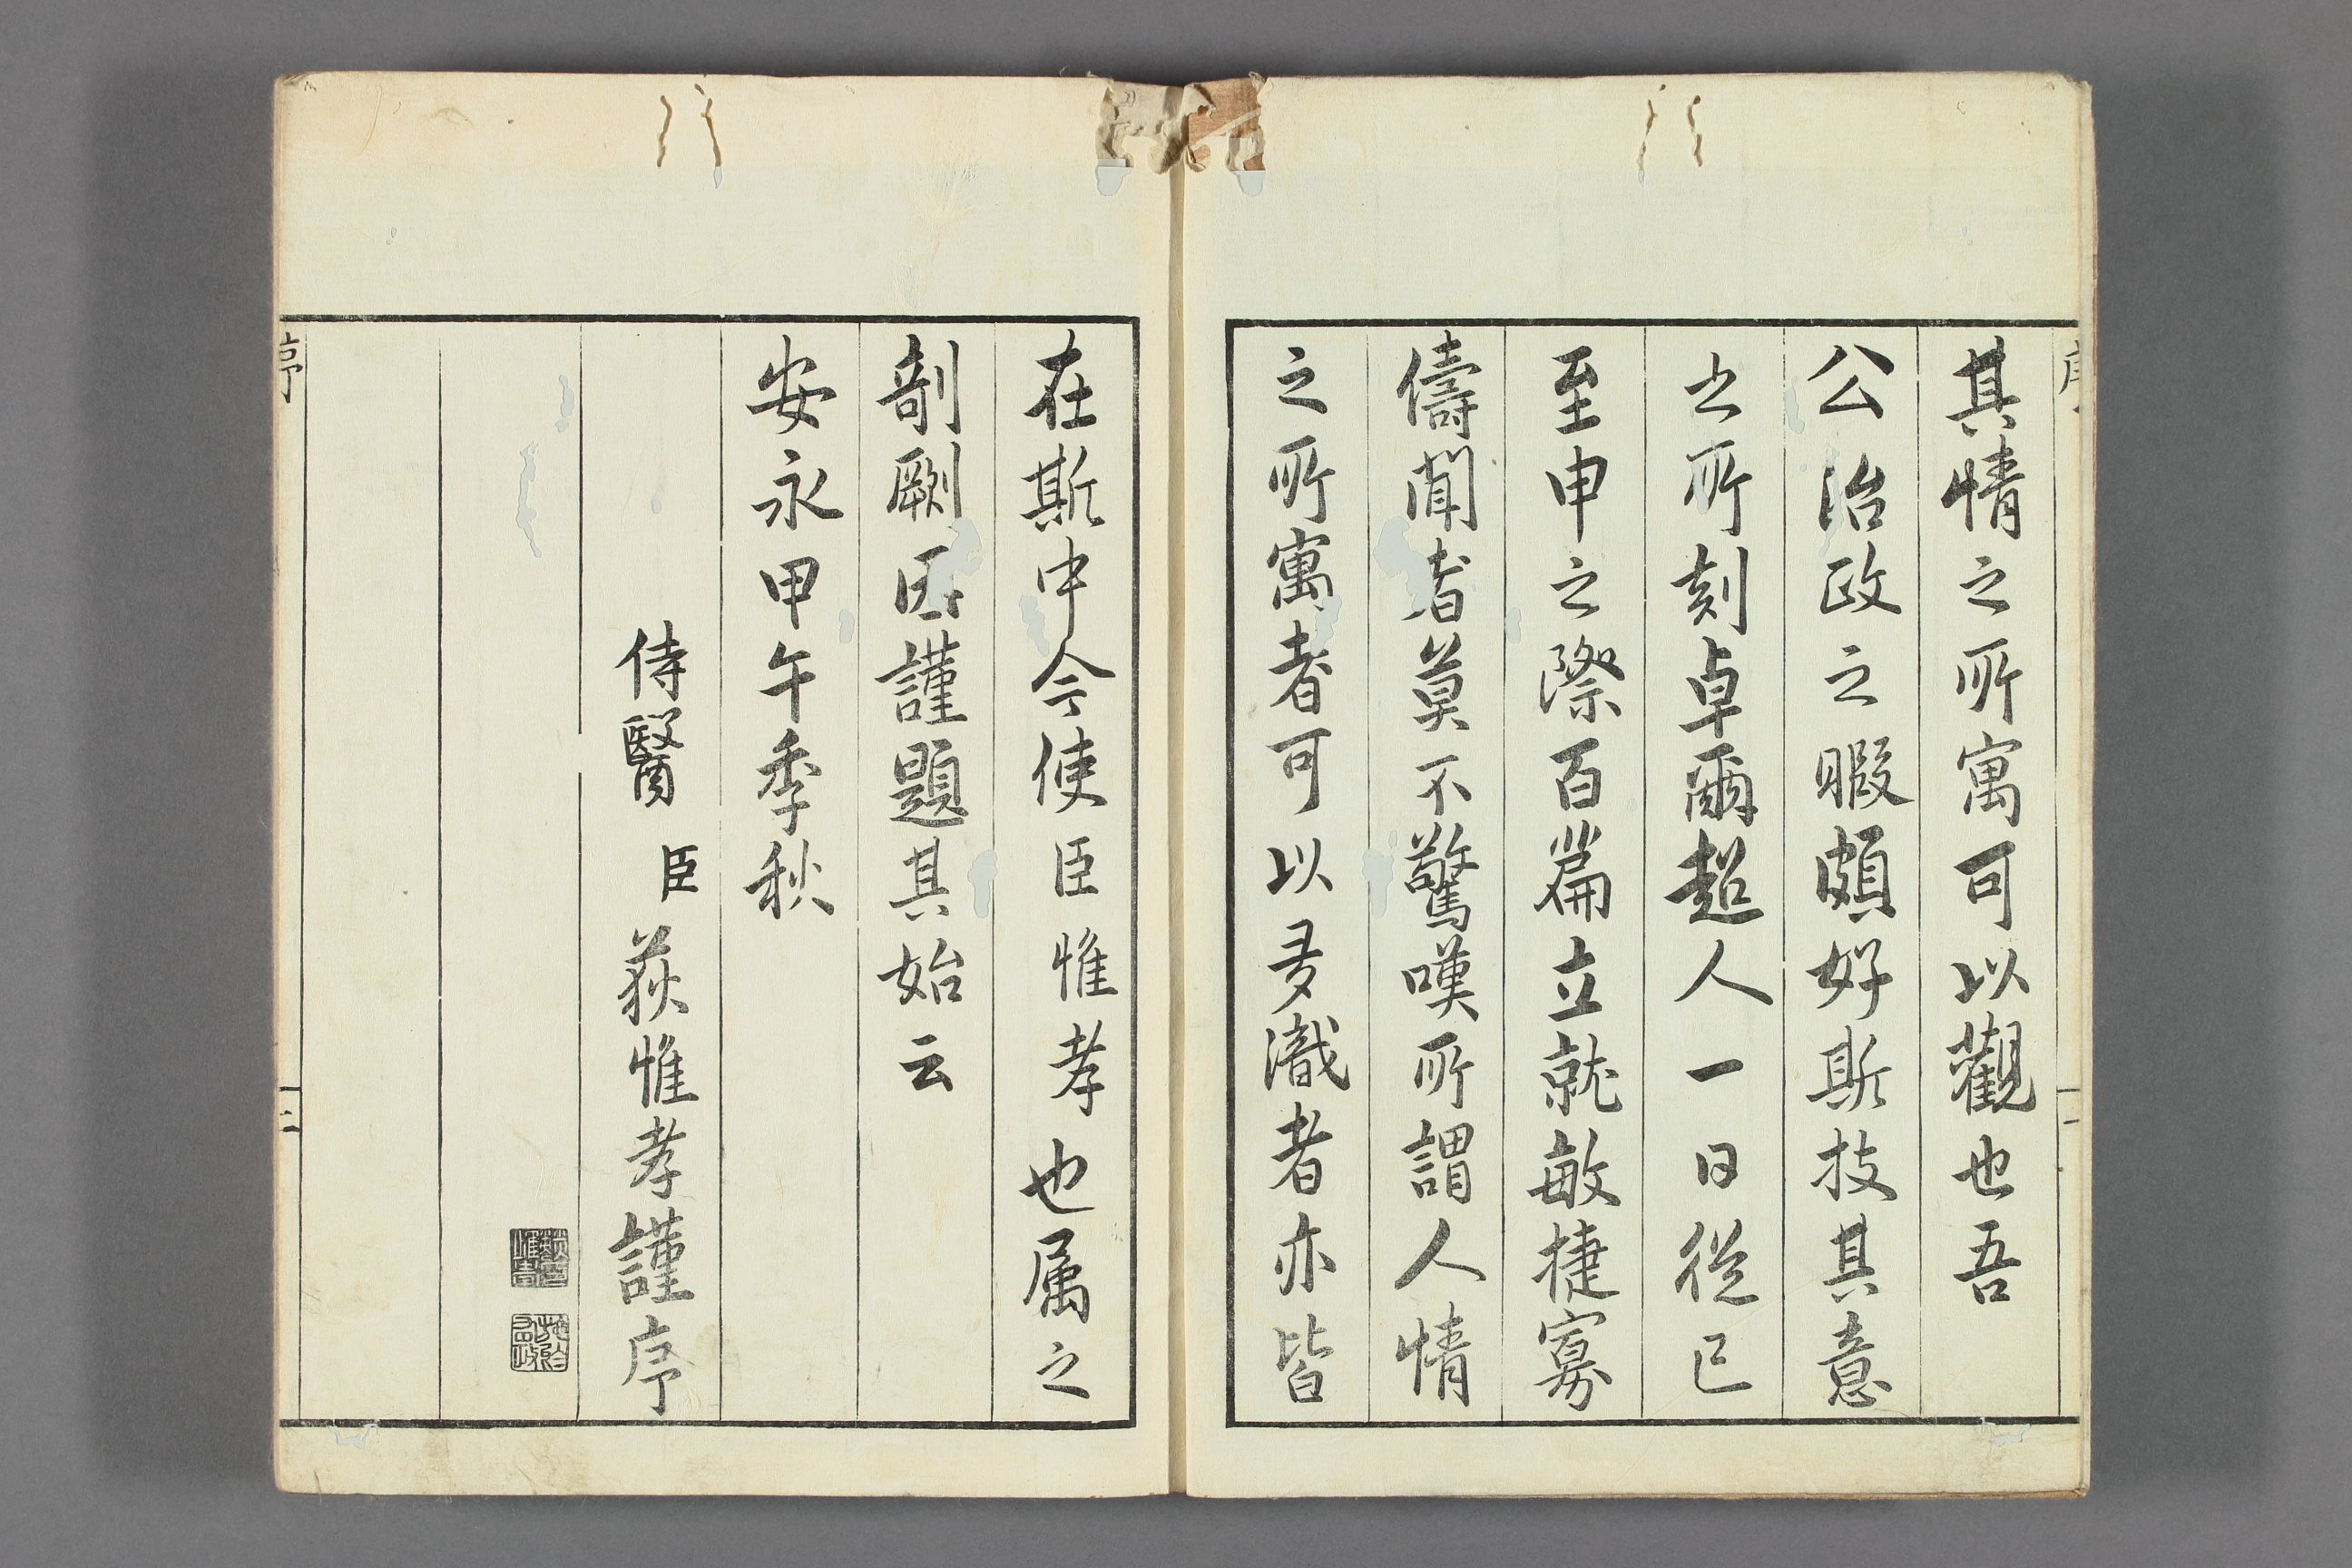 其情之所寓可以觀也吾
公治政之暇頗好斯技其意
之所刻卓爾超人一日從巳
至申之際百篇立就敏捷寡
儔聞者莫不驚嘆所謂人情
之所寓者可以多識者亦皆
在斯中今使臣惟孝也属之
剞劂因謹題其始云
安永甲午季秋
侍醫 臣 荻惟孝謹序
序